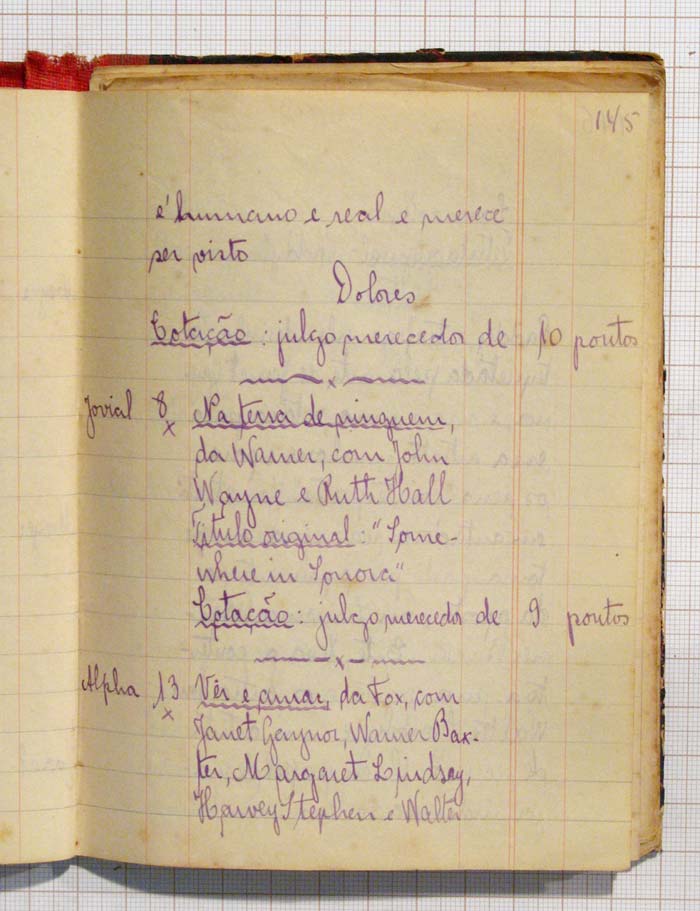 145
é humano e real e merece
ser visto
Dolores
Cotação: julgo merecedor de 10 pontos
x
Jovial 8 Na terra de ninguem,
x da Warner, com John
Wayne e Ruth Hall
Titulo original: "Some-
where in Sonora"
Cotação: julgo merecedor de 9 pontos
x
Alpha 13 Vêr e amar, da Fox, com
x Janet Gaynor, Warner Bax-
ter, Margaret Lindsay,
Harvey Stephen e Walter